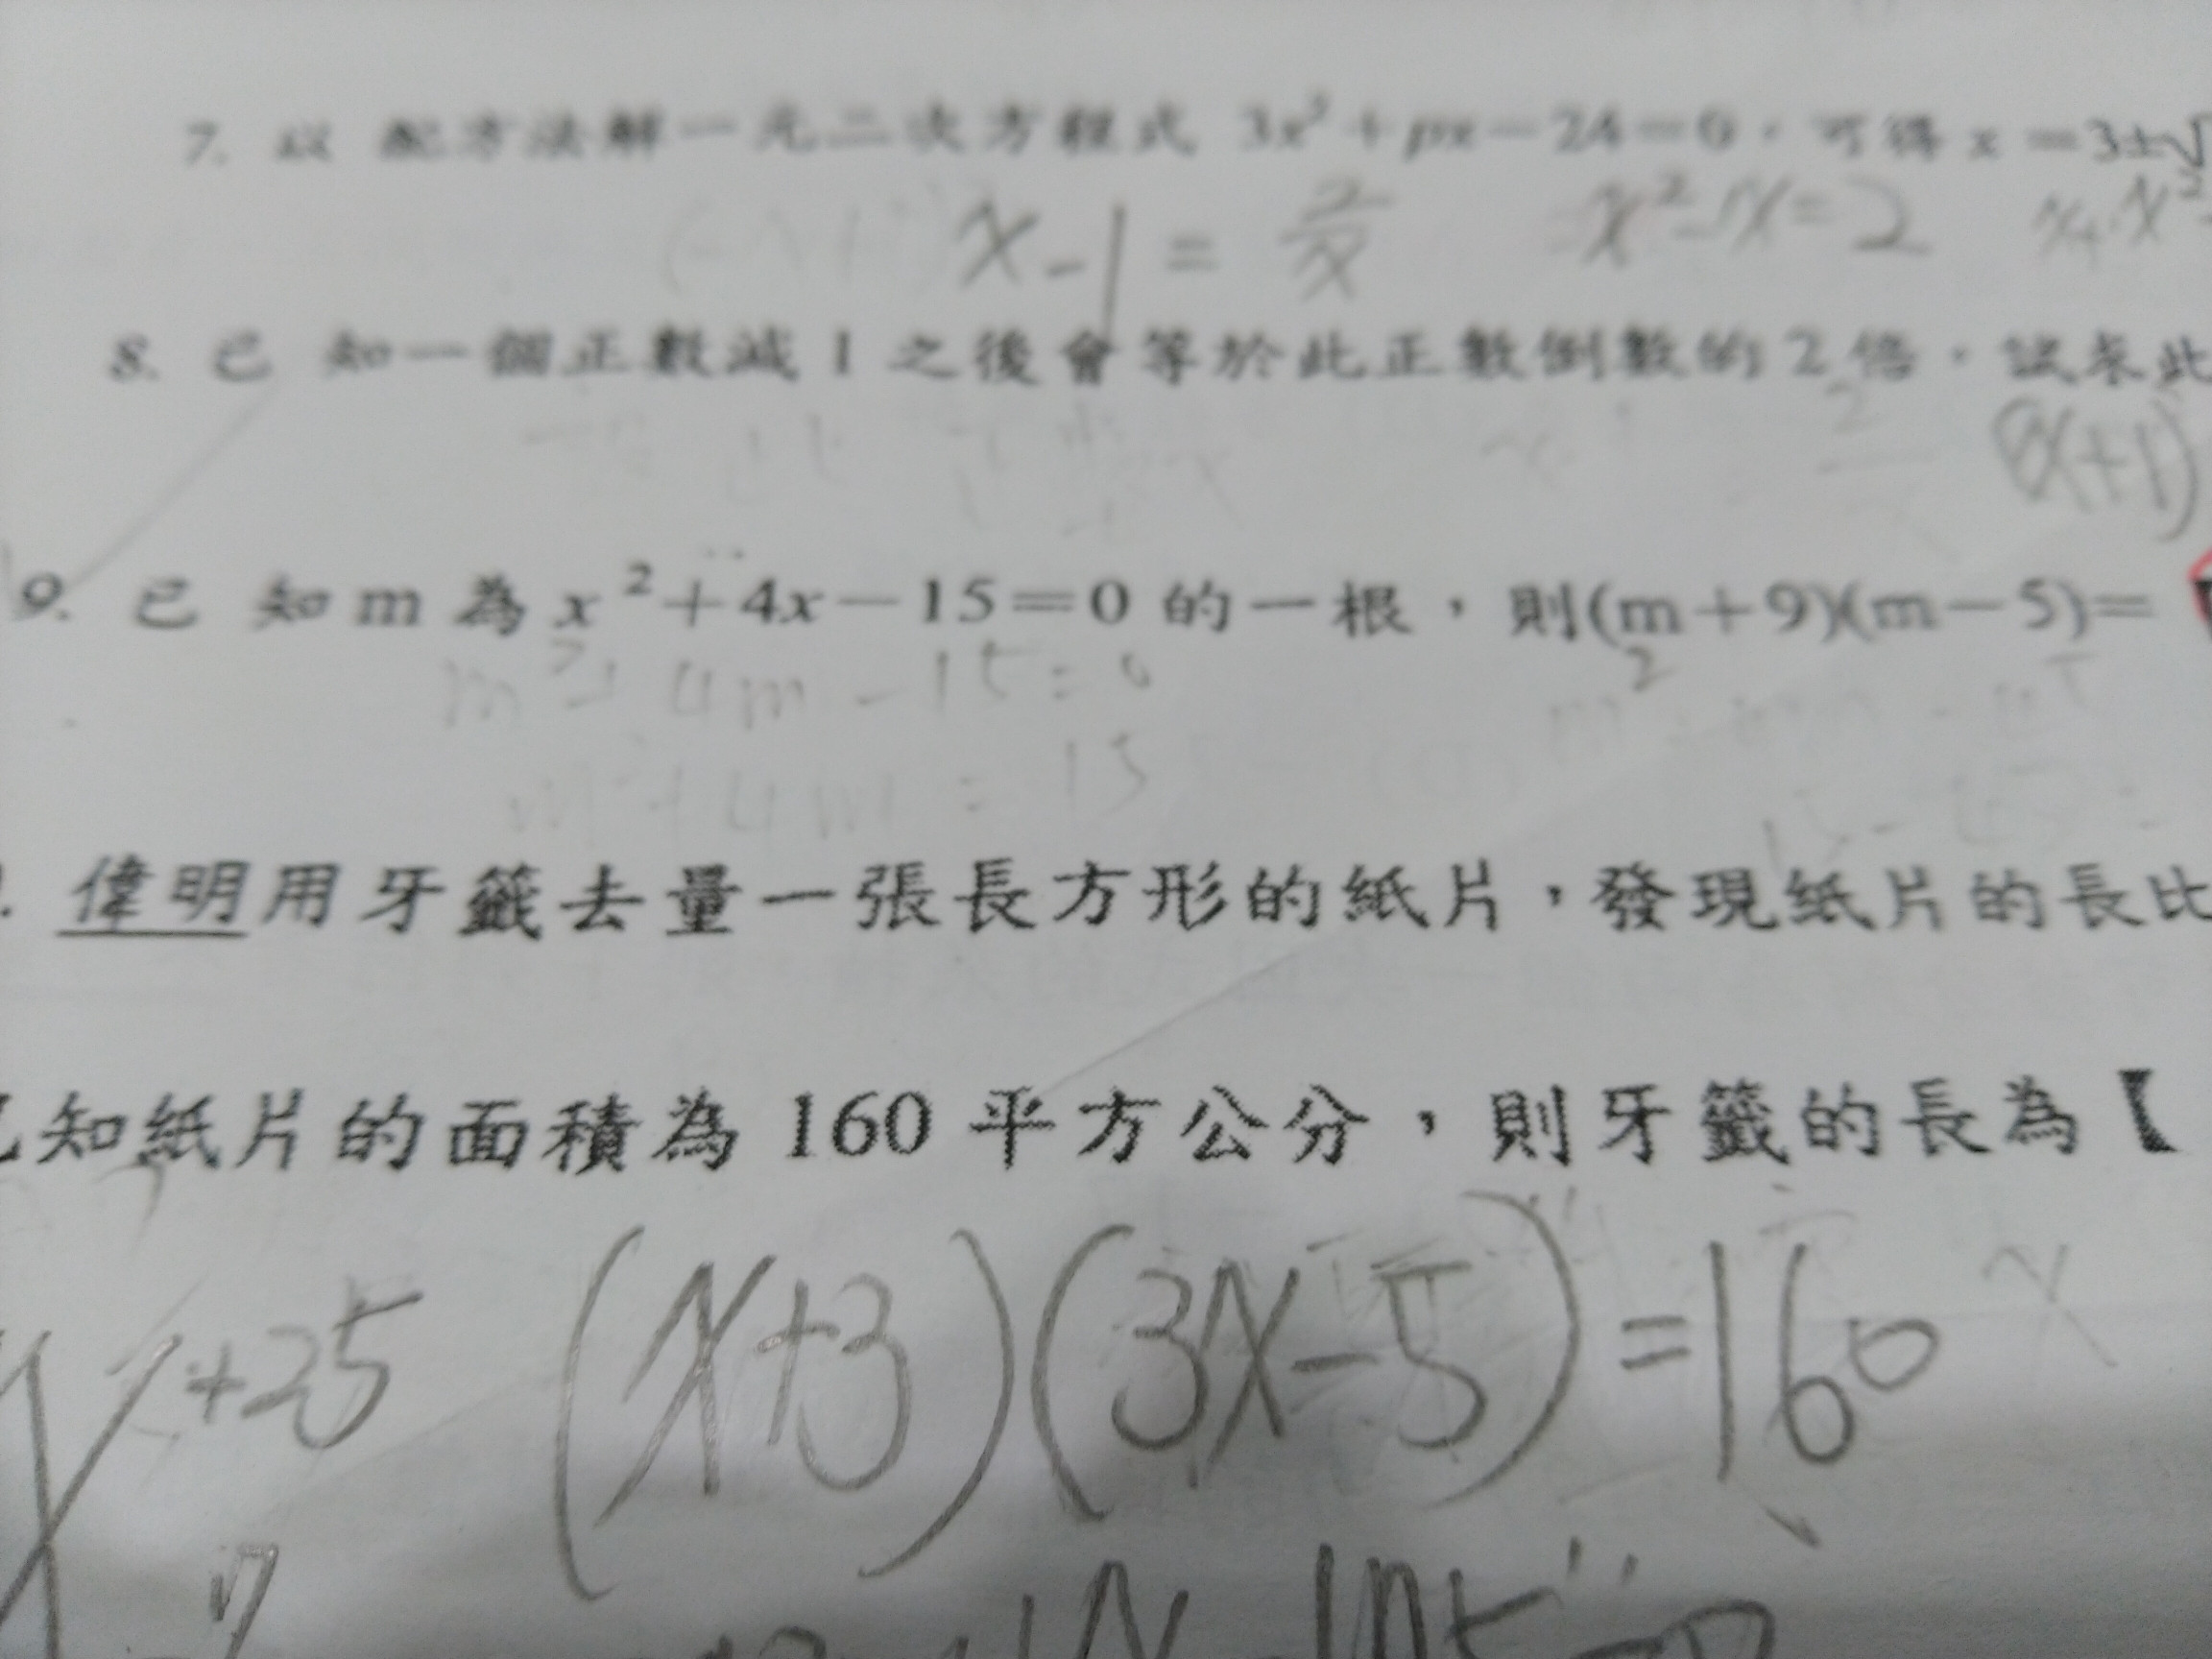 7. 以 配方法解一元二次方程式 3x²+px−24=0，可得 x=3±√
x-1=2/x x²-x=2
8. 已 知一個正數減 1 之後會等於此正數倒數的 2 倍，試求此
(x+1)
9. 已 知 m 為 x²+4x−15=0 的一根，則(m+9)(m−5)=
m²+4m-15=0
m²+4m=15
偉明用牙籤去量一張長方形的紙片，發現紙片的長比
知紙片的面積為 160 平方公分，則牙籤的長為【
+25 (x+3)(3x-5)=160